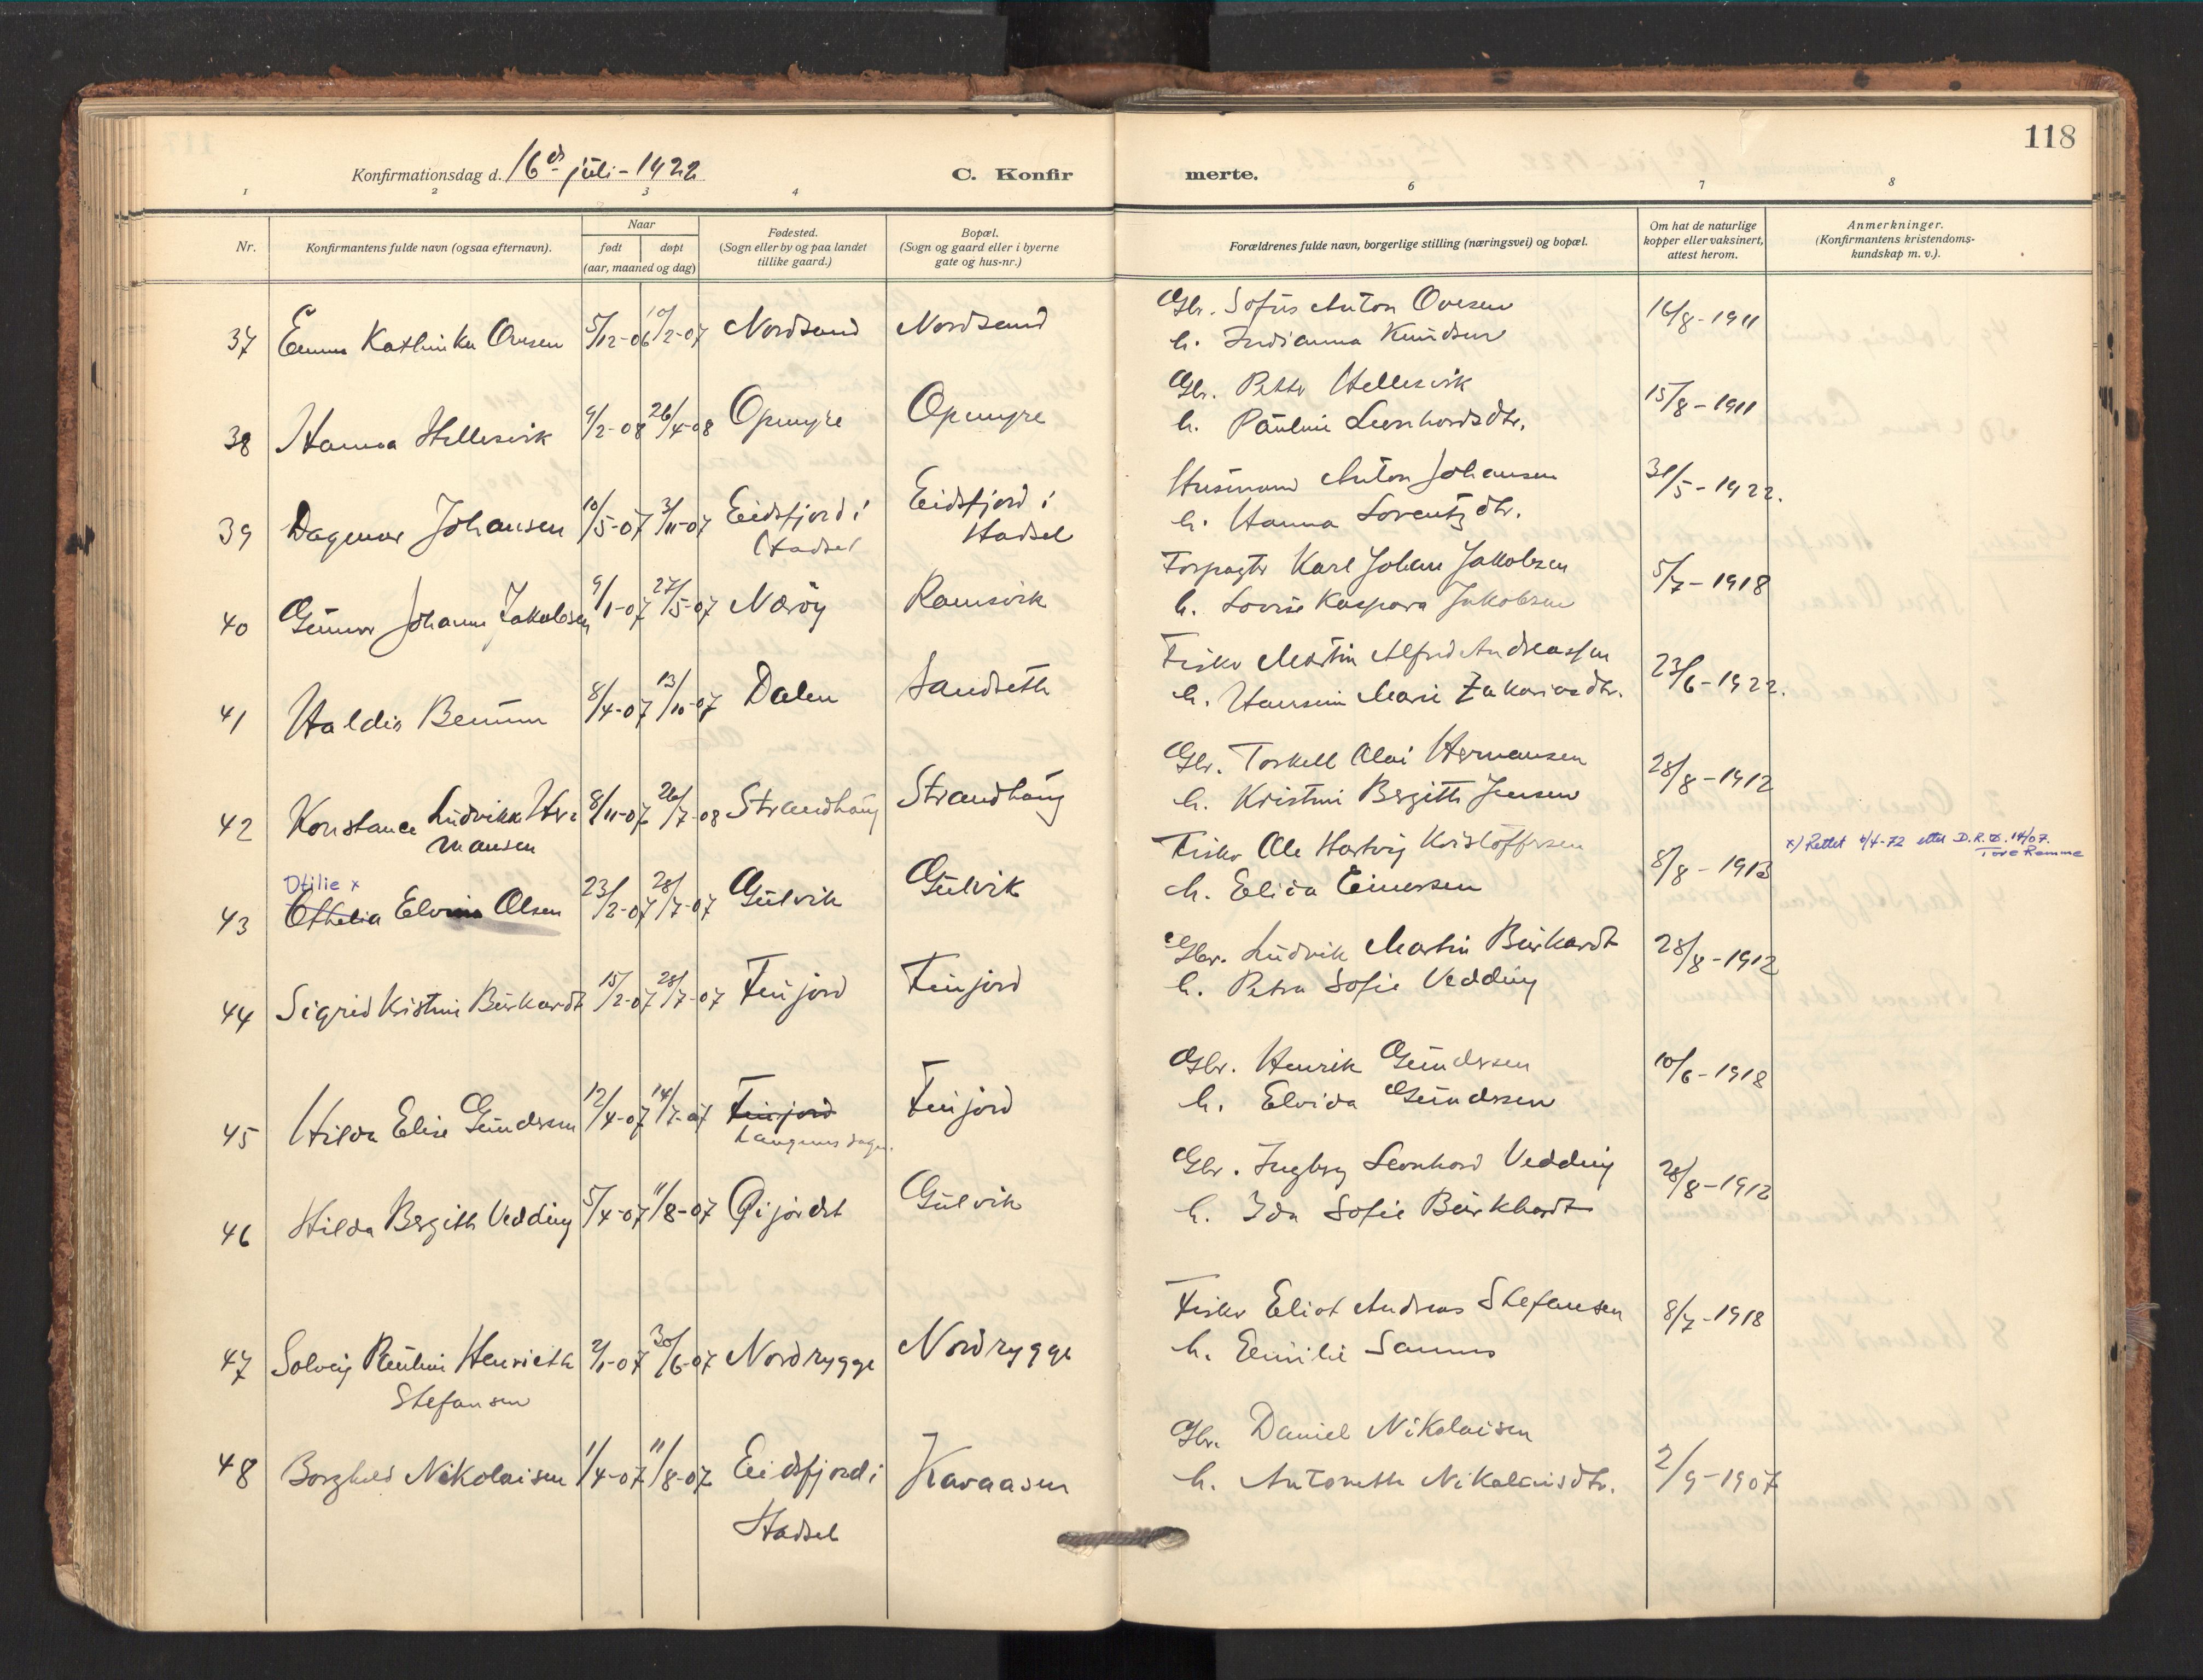 118
Konfirmationsdag d. 16de juli - 1922
C. Konfirmerte.
1 2 3 4 6 7 8
Nr.
Konfirmantens fulde navn (ogsaa efternavn).
Naar
født døpt
(aar, maaned og dag)
Fødested.
(Sogn eller by og paa landet
tillike gaard.)
Bopæl.
(Sogn og gaard eller i byerne
gate og hus-nr.)
Forældrenes fulde navn, borgerlige stilling (næringsvei) og bopæl.
Om hat de naturlige
kopper eller vaksinert,
attest herom.
Anmerkninger.
(Konfirmantens kristendoms-
kundskap m. v.).
Gbr. Sofus Anton Ovesen
37 Emma Kathinka Ovesen 5/12-06 10/2-07 Nordsand Nordsand 16/8-1911
h. Indianna Knudsen
Gbr. Petter Hellesvik
38 Hanna Hellesvik 9/2-08 26/4-08 Opmyre Opmyre 15/8-1911
h. Pauline Leonhardsdtr.
Husmand Anton Johansen
39 Dagmar Johansen 10/5-07 3/11-07 Eidsfjord i Hadsel Eidsfjord i Hadsel 31/5-1922.
h. Hanna Lorentzdtr.
Forpagter Karl Johan Jakobsen
40 Gunvor Johanne Jakobsen 9/1-07 27/5-07 Nærøy Ramsvik 5/7-1918
h. Lovise Kaspara Jakobsen
Fisker Martin Alfred Andreassen
41 Haldis 8/4-07 13/10-07 Dalen Sandseth 23/6-1922.
h. Hansine Marie Zakariasdtr.
Gbr. Torkell Olai Hermansen
42 Konstance Ludvikke Her-
mansen 8/11-07 26/7-08 Strandhaug Strandhaug 28/8-1912
h. Kristine Bergitte Jensen
Fisker Ole Hartvig Kristoffersen
x) Rettet 4/4-72 etter D.R. 14/07.
Tove Remme
Otilie x
43 Othelia Elvine Olsen 23/2-07 28/7-07 Gulvik Gulvik 8/8-1913
h. Elida Einersen
Gbr. Ludvik Martin Burkardt
44 Sigrid Kristine Burkardt 15/2-07 28/7-07 Finjord Finjord 28/8-1912
h. Petra Sofie Vedding
Gbr. Henrik Gundersen
45 Hilda Elise Gundersen 12/4-07 14/7-07 Finjord Langenes sogn. Finjord 10/6-1918
h. Elvida Gundersen
Gbr. Ingberg Leonhard Vedding
46 Hilda Bergitte Vedding 5/4-07 11/8-07 Gijordet Gulvik 28/8-1912
h. Ida Sofie Burkhardt
Fisker Eliot Andreas Stefansen
47 Solveig Pauline Henriette
Stefansen 2/1-07 30/6-07 Nordrygge Nordrygge 8/7-1918
h. Emilie Sannes
Gbr. Daniel Nikolaisen
48 Borghild Nikolaisen 1/4-07 11/8-07 Eidsfjord i
Hadsel Kavaasen 2/9-1907
h. Antonette Nikolaisdtr.